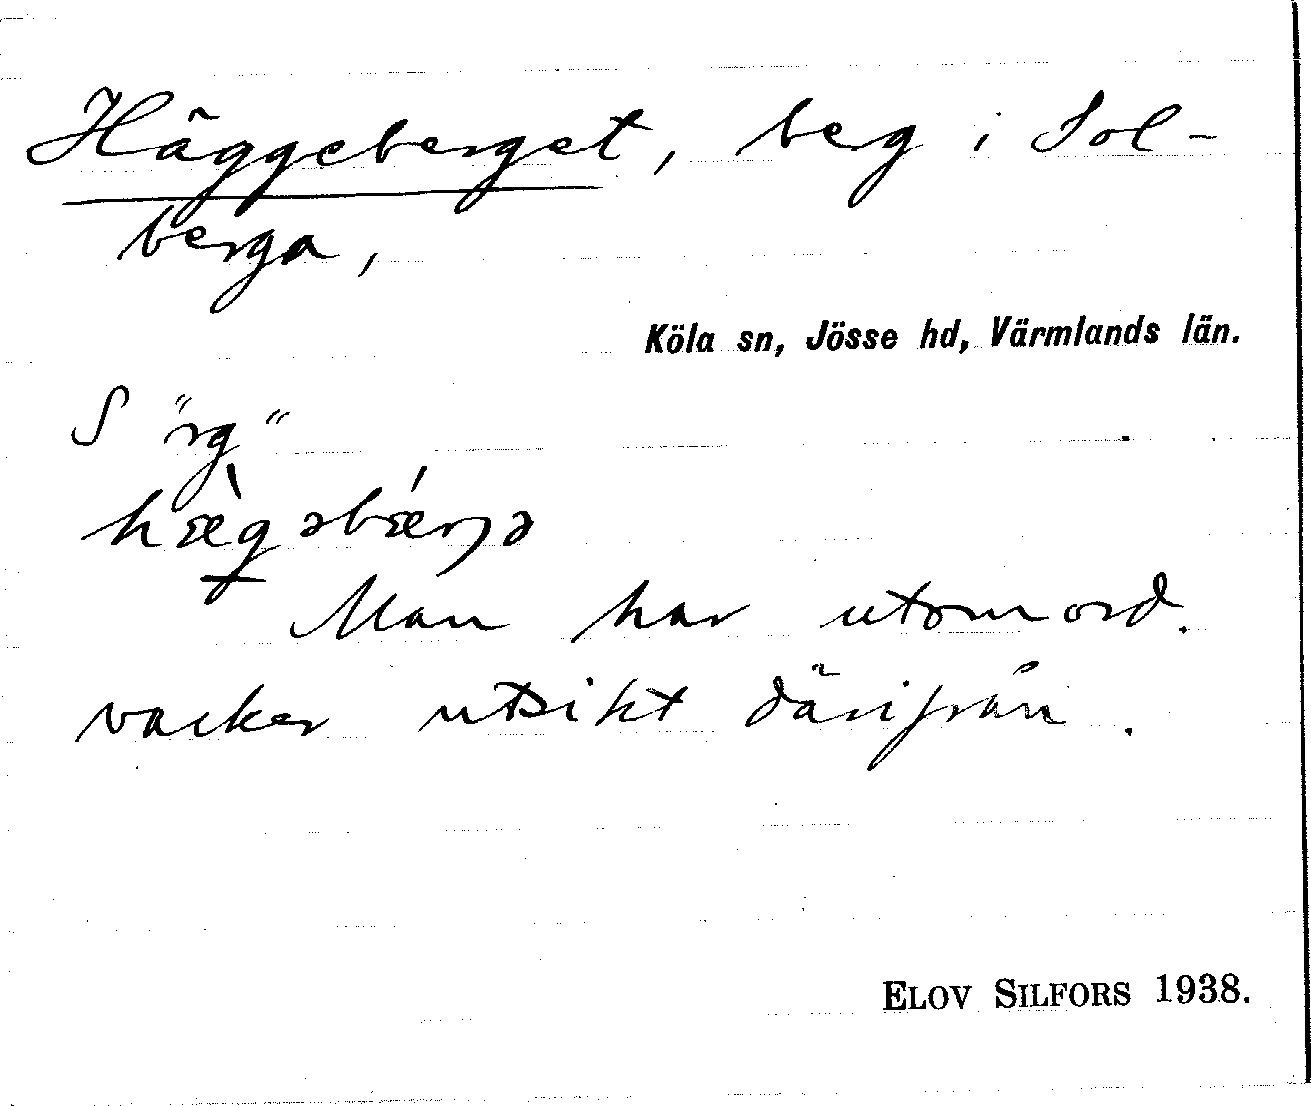 Häggeberget, berg i Sol-
berga,
Köla sn, Jösse hd, Värmlands län.
S "rg"
Man har utomord.
vacker utsikt därifrån.
ELOV SILFORS 1938.